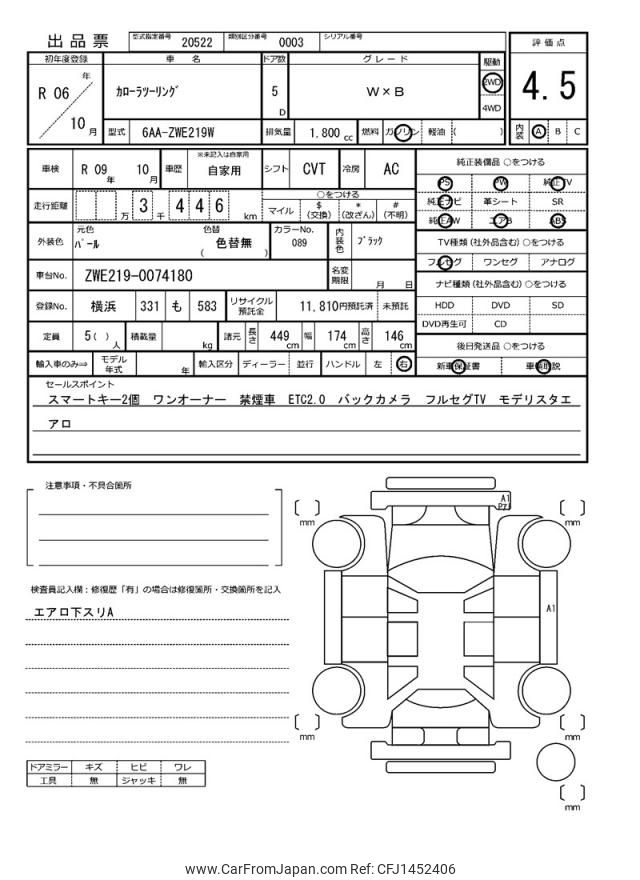 出品票 型式指定番号 20522 類別区分番号 0003 シリアル番号
評価点
初年度登録 車名 ドア数 グレード 駆動
R 06 年 10 月 カローラツーリング 5 D W×B 2WD 4WD
4.5
型式 6AA-ZWE219W 排気量 1,800 cc 燃料 ガソリン 軽油 ( )
内装 A B C
車検 R 09 年 10 月 車歴 ※未記入は自家用 自家用 シフト CVT 冷房 AC
純正装備品 ○をつける
PS PW 純正TV
純正ナビ 革シート SR
純正AW エアB ABS
走行距離 万 3 千 4 4 6 km
○をつける
マイル $(交換) *(改ざん) #(不明)
外装色 元色 パール 色替 ( 色替無 ) カラーNo. 089 内装色 ブラック
TV種類(社外品含む) ○をつける
フルセグ ワンセグ アナログ
車台No. ZWE219-0074180 名変期限 月 日
ナビ種類(社外品含む) ○をつける
HDD DVD SD
DVD再生可 CD
登録No. 横浜 331 も 583 リサイクル預託金 11,810円預託済 未預託
定員 5( )人 積載量 kg 諸元 長さ 449cm 幅 174cm 高さ 146cm
後日発送品 ○をつける
新車保証書 車輌取説
輸入車のみ⇒ モデル年式 年 輸入区分 ディーラー 並行 ハンドル 左 右
セールスポイント
スマートキー2個 ワンオーナー 禁煙車 ETC2.0 バックカメラ フルセグTV モデリスタエ
アロ
注意事項・不具合箇所
検査員記入欄:修復歴「有」の場合は修復箇所・交換箇所を記入
エアロ下スリA
A1
A1
mm
mm
mm
mm
mm
ドアミラー キズ ヒビ ワレ
工具 無 ジャッキ 無
www.CarFromJapan.com Ref: CFJ1452406